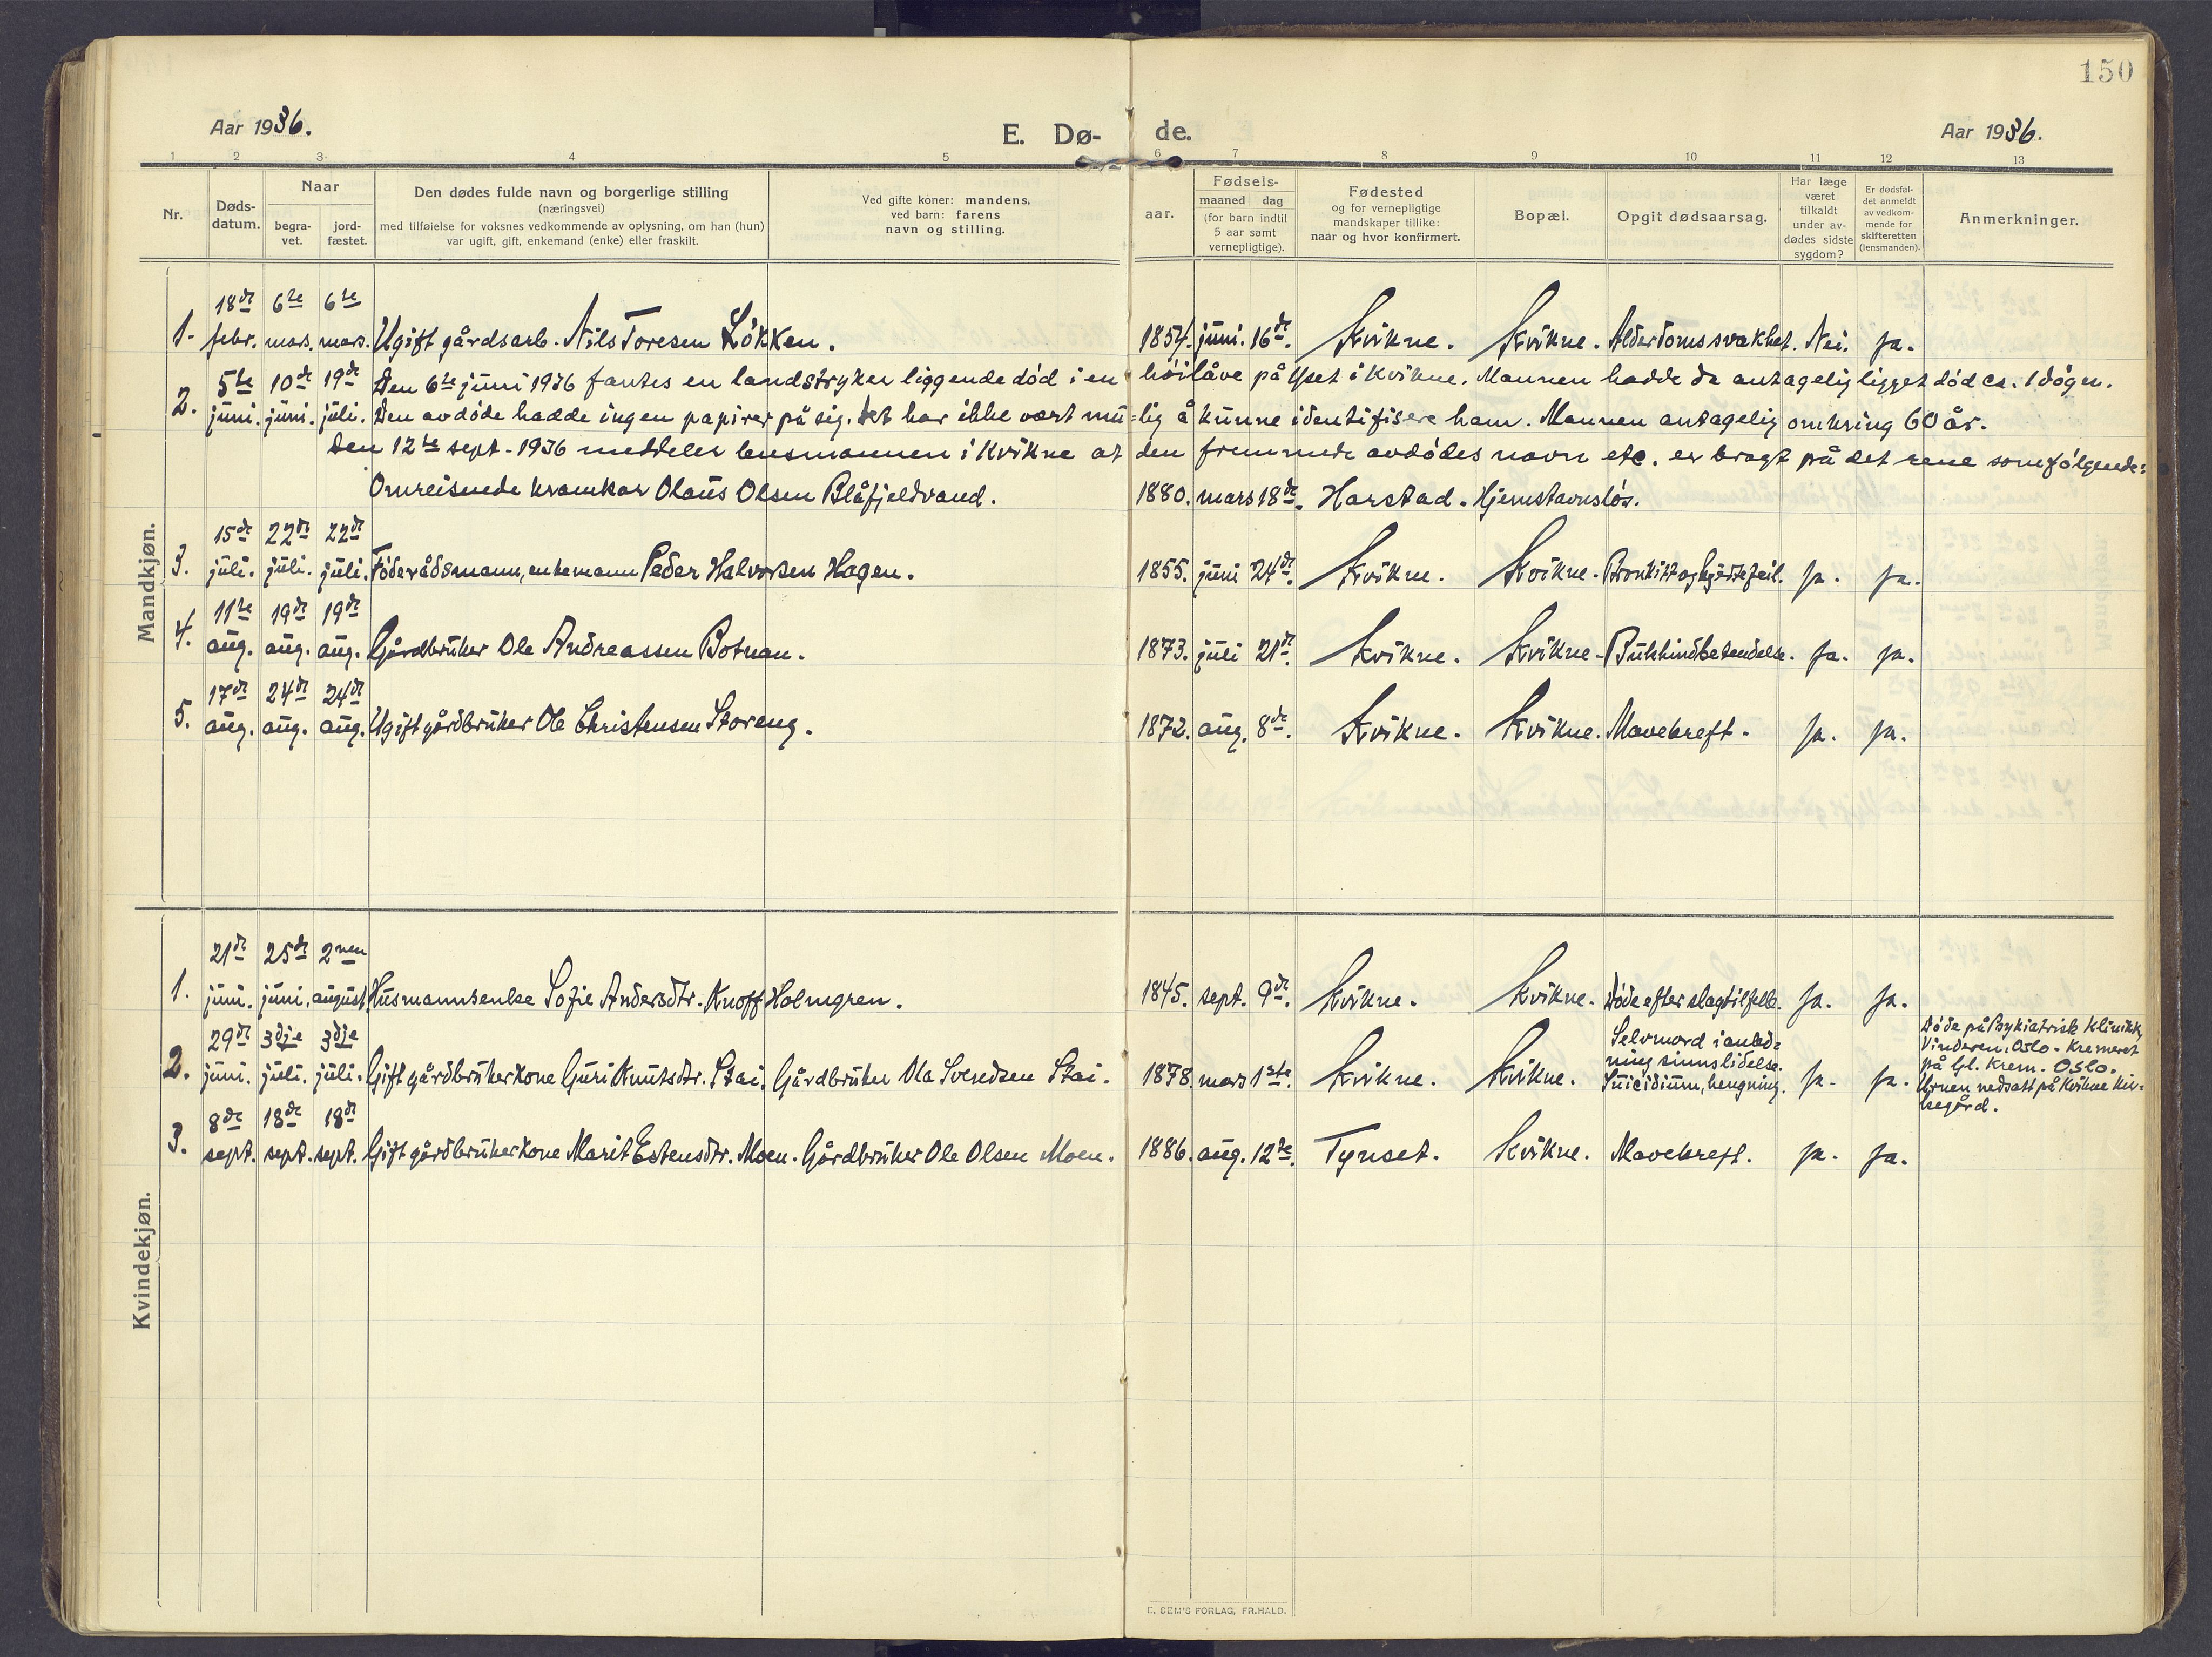 150
Aar 1936.
E. Dø-
de.
Aar 1936.
1 2 3 4 5 6 7 8 9 10 11 12 13
Nr.
Døds-
datum.
Naar
begra-
vet.
jord-
fæstet.
Den dødes fulde navn og borgerlige stilling
(næringsvei)
med tilføielse for voksnes vedkommende av oplysning, om han (hun)
var ugift, gift, enkemand (enke) eller fraskilt.
Ved gifte koner: mandens,
ved barn: farens
navn og stilling.
aar.
Fødsels-
maaned dag
(for barn indtil
5 aar samt
vernepligtige).
Fødested
og for vernepligtige
mandskaper tillike:
naar og hvor konfirmert.
Bopæl.
Opgit dødsaarsag.
Har læge
været
tilkaldt
under av-
dødes sidste
sygdom?
Er dødsfal-
det anmeldt
av vedkom-
mende for
skifteretten
(lensmanden).
Anmerkninger.
Mandkjøn.
18de 6te 6te
1. febr. mars. mars. Ugift gårdsarb. Nils Toresen Løkken. 1854. juni. 16de. Kvikne. Kvikne. Alderdomssvakhet. Nei. Ja.
5te 10de 19de Den 6te juni 1936 fantes en landstryker liggende død i en høilåve på Yset i Kvikne. Mannen hadde da antagelig ligget død ca. 1 døgn.
2. juni. juni. juli. Den avdøde hadde ingen papirer på sig. Det har ikke vært mu=lig å kunne identifisere ham. Mannen antagelig omkring 60 år.
Den 12te sept. 1936 meddeler lensmannen i Kvikne at den fremmede avdødes navn etc. er bragt på det rene som følgende:
Omreisende kramkar Olaus Olsen Blåfjeldvand. 1880. mars 18de. Harstad. Hjemstavnsløs.
15de 22de 22de
3. juli. juli. juli. Føderådsmann, enkemann Peder Halvorsen Hagen. 1855. juni 24de. Kvikne. Kvikne. Bronkitt og hjertefeil. Ja. Ja.
11te 19de 19de
4. aug. aug. aug. Gårdbruker Ole Andreassen Botnan. 1873. juli 21de. Kvikne. Kvikne. Bukhindbetendelse. Ja. Ja.
17de 24de 24de
5. aug. aug. aug. Ugift gårdbruker Ole Christensen Storeng. 1872. aug. 8de. Kvikne. Kvikne. Mavekreft. Ja. Ja.
Kvindekjøn.
21de 25de 2nen
1. juni. juni. august. Husmannsenke Sofie Andersdtr. Knoff Holmgren. 1845. sept. 9de. Kvikne. Kvikne. Døde efter slagtilfelle. Ja. Ja.
29de 3dje 3dje
2. juni. juli. juli. Gift gårdbrukerkone Guri Knutsdtr. Stai. Gårdbruker Ola Svendsen Stai. 1878. mars 1ste. Kvikne. Kvikne.
Selvmord i anled=
ning sinnslidelse.
Suicidium, hengning. Ja. Ja.
Døde på Psykiatrisk Klinikk,
Vinderen, Oslo. Kremeret
på Gl. Krem. Oslo.
Urnen nedsatt på Kvikne kir=
kegård.
8de 18de 18de
3. sept. sept. sept. Gift gårdbrukerkone Marit Estensdtr. Moen. Gårdbruker Ole Olsen Moen. 1886. aug. 12te. Tynset. Kvikne. Mavekreft. Ja. Ja.
E. SEM'S FORLAG, FR.HALD.